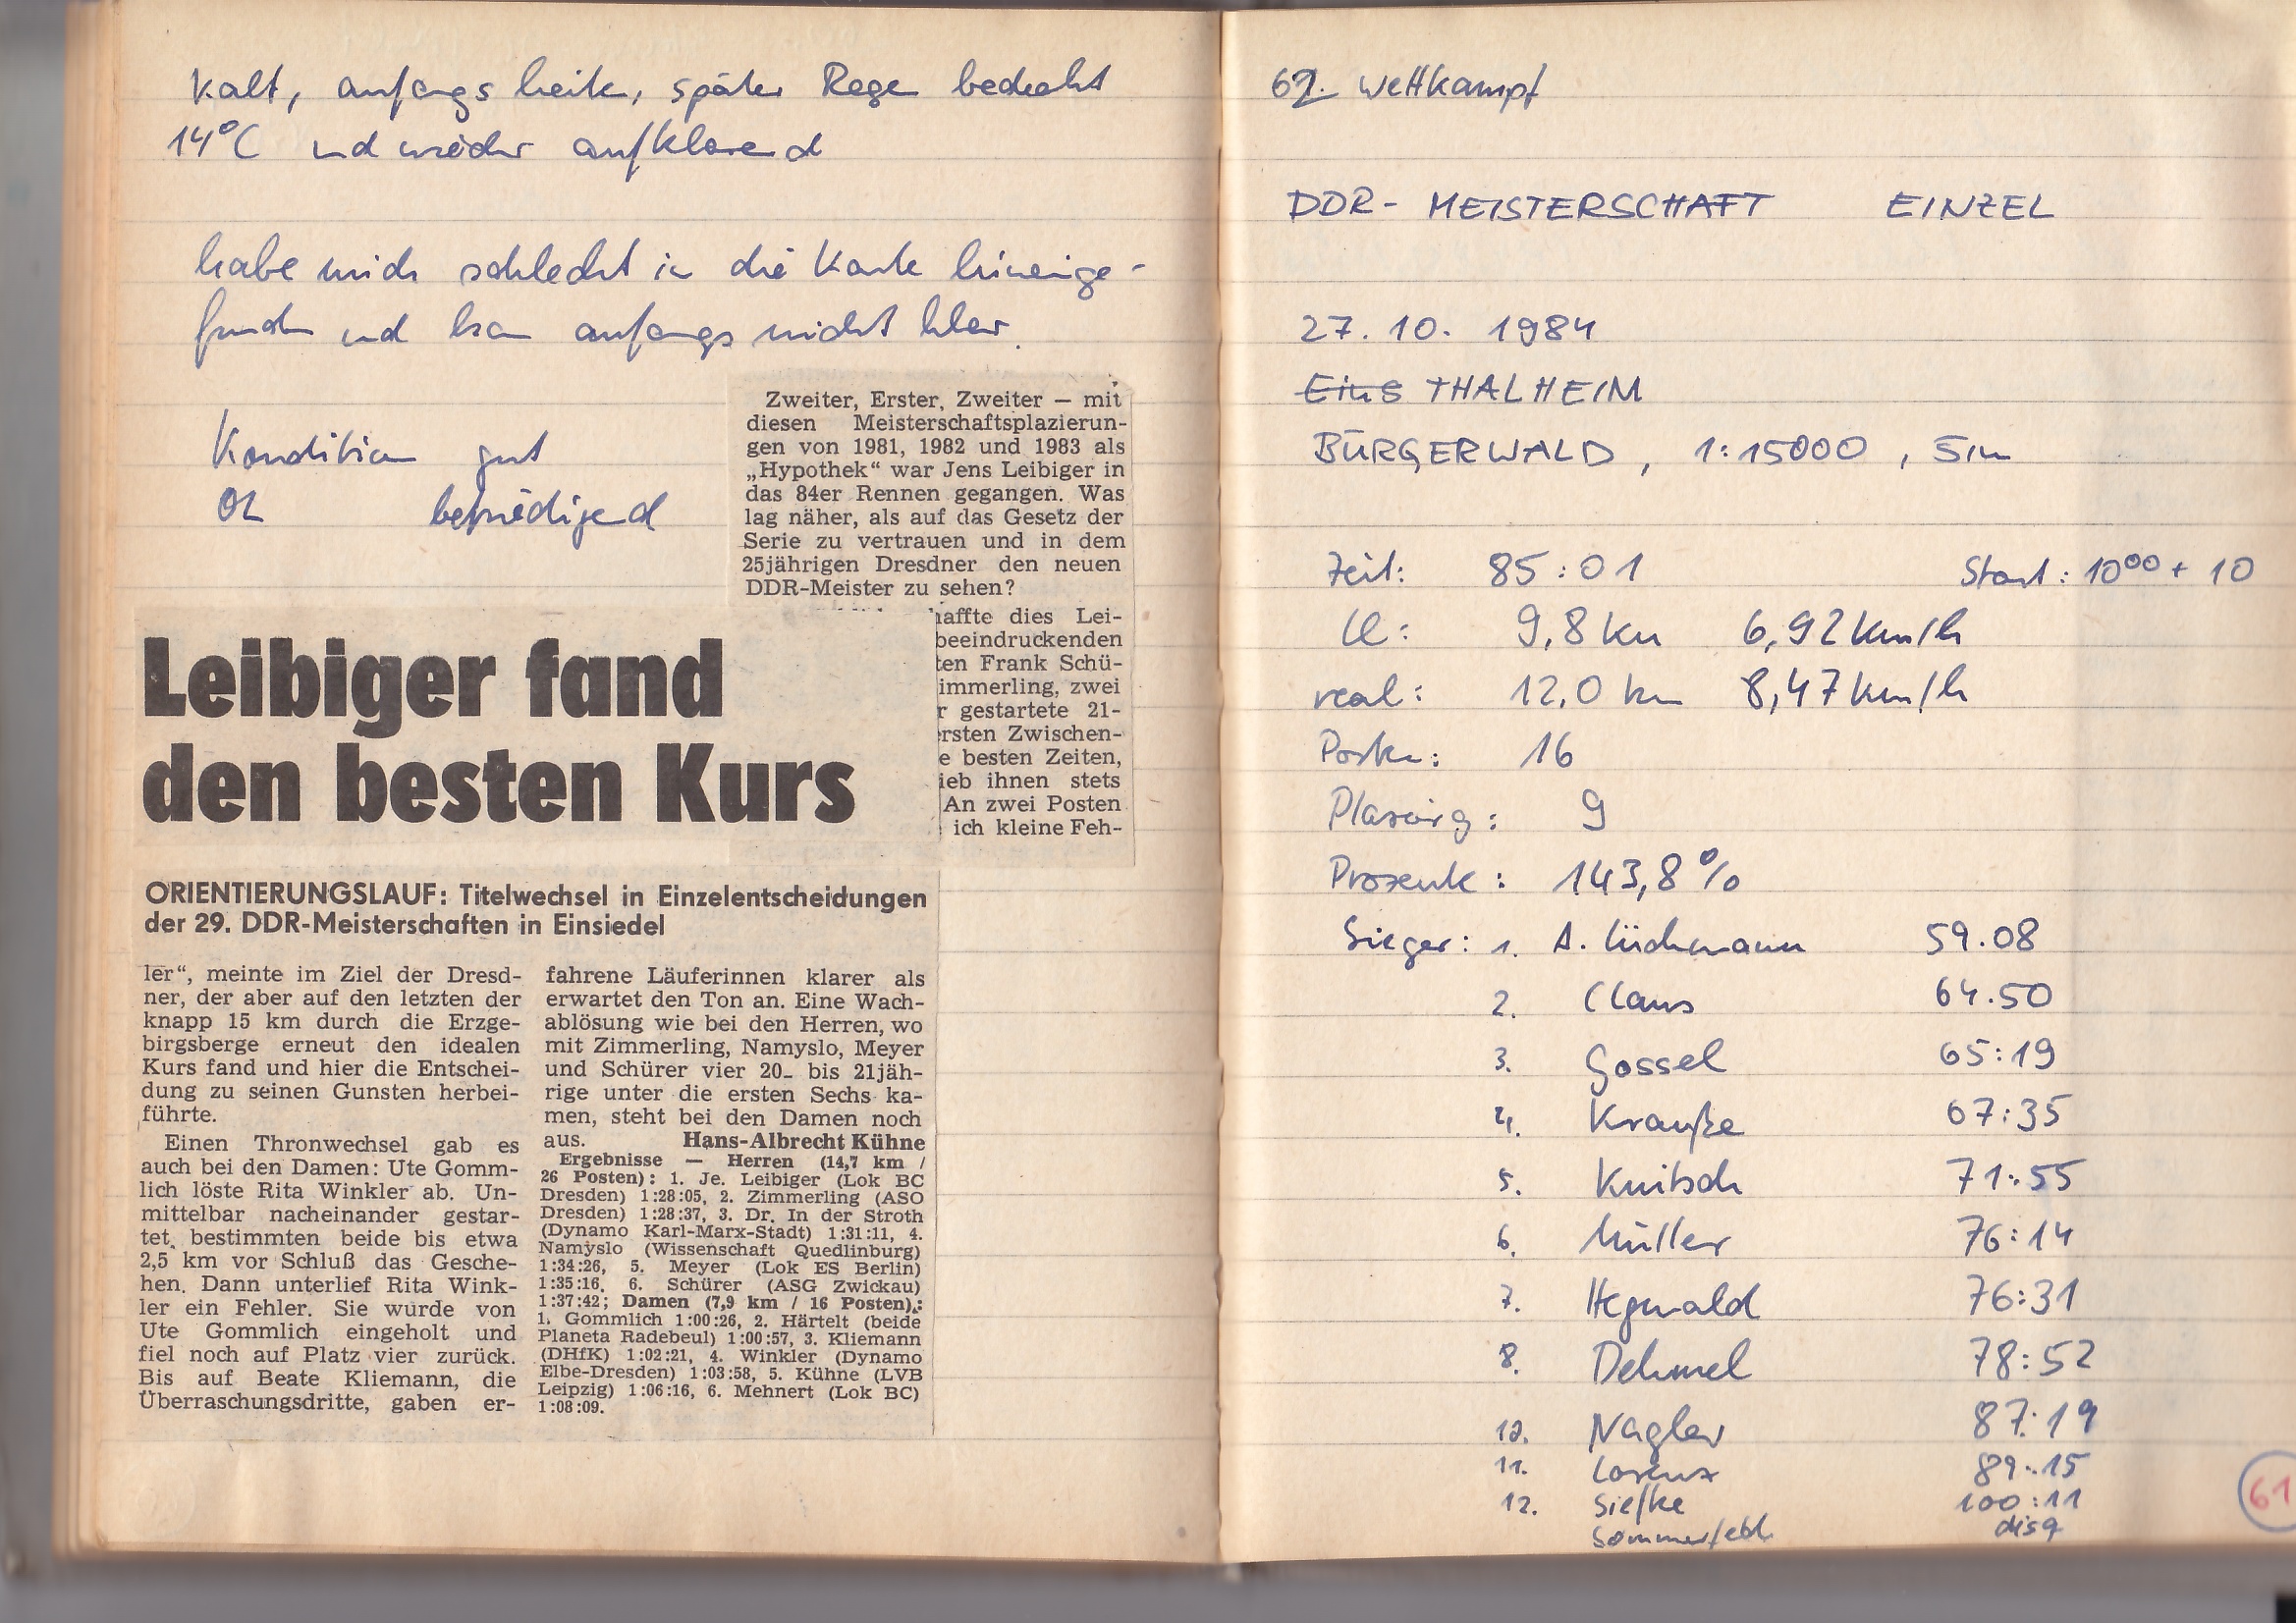 kalt, anfangs heiter, später Regen bedeckt
14°C und wieder aufklarend
habe mich schlecht in die Karte hineinge-
funden und kam anfangs nicht klar.
Kondition gut
OL befriedigend
Zweiter, Erster, Zweiter — mit
diesen Meisterschaftsplazierun-
gen von 1981, 1982 und 1983 als
„Hypothek“ war Jens Leibiger in
das 84er Rennen gegangen. Was
lag näher, als auf das Gesetz der
Serie zu vertrauen und in dem
25jährigen Dresdner den neuen
DDR-Meister zu sehen?
haffte dies Lei-
beeindruckenden
ten Frank Schü-
immerling, zwei
r gestartete 21-
ersten Zwischen-
e besten Zeiten,
ieb ihnen stets
An zwei Posten
ich kleine Feh-
Leibiger fand
den besten Kurs
ORIENTIERUNGSLAUF: Titelwechsel in Einzelentscheidungen
der 29. DDR-Meisterschaften in Einsiedel
ler“, meinte im Ziel der Dresd-
ner, der aber auf den letzten der
knapp 15 km durch die Erzge-
birgsberge erneut den idealen
Kurs fand und hier die Entschei-
dung zu seinen Gunsten herbei-
führte.
Einen Thronwechsel gab es
auch bei den Damen: Ute Gomm-
lich löste Rita Winkler ab. Un-
mittelbar nacheinander gestar-
tet bestimmten beide bis etwa
2,5 km vor Schluß das Gesche-
hen. Dann unterlief Rita Wink-
ler ein Fehler. Sie wurde von
Ute Gommlich eingeholt und
fiel noch auf Platz vier zurück.
Bis auf Beate Kliemann, die
Überraschungsdritte, gaben er-
fahrene Läuferinnen klarer als
erwartet den Ton an. Eine Wach-
ablösung wie bei den Herren, wo
mit Zimmerling, Namyslo, Meyer
und Schürer vier 20- bis 21jäh-
rige unter die ersten Sechs ka-
men, steht bei den Damen noch
aus. Hans-Albrecht Kühne
Ergebnisse — Herren (14,7 km /
26 Posten): 1. Je. Leibiger (Lok BC
Dresden) 1:28:05, 2. Zimmerling (ASO
Dresden) 1:28:37, 3. Dr. In der Stroth
(Dynamo Karl-Marx-Stadt) 1:31:11, 4.
Namyslo (Wissenschaft Quedlinburg)
1:34:26, 5. Meyer (Lok ES Berlin)
1:35:16, 6. Schürer (ASG Zwickau)
1:37:42; Damen (7,9 km / 16 Posten):
1. Gommlich 1:00:26, 2. Härtelt (beide
Planeta Radebeul) 1:00:57, 3. Kliemann
(DHfK) 1:02:21, 4. Winkler (Dynamo
Elbe-Dresden) 1:03:58, 5. Kühne (LVB
Leipzig) 1:06:16, 6. Mehnert (Lok BC)
1:08:09.
62. Wettkampf
DDR- MEISTERSCHAFT EINZEL
27. 10. 1984
Eins THALHEIM
BÜRGERWALD, 1:15000, 5m
Zeit: 85:01 Start: 10⁰⁰ + 10
LL: 9,8 km 6,92 km/h
real: 12,0 km 8,47 km/h
Posten: 16
Plazierg: 9
Prozente: 143,8 %
Sieger: 1. A. Lückmann 59.08
2. Claus 64.50
3. Gossel 65:19
4. Krauße 67:35
5. Knitsch 71:55
6. Müller 76:14
7. Hegewald 76:31
8. Dehmel 78:52
10. Nagler 87:19
11. Lorenz 89:15
12. Siefke 100:11
Sommerfeld disq
61